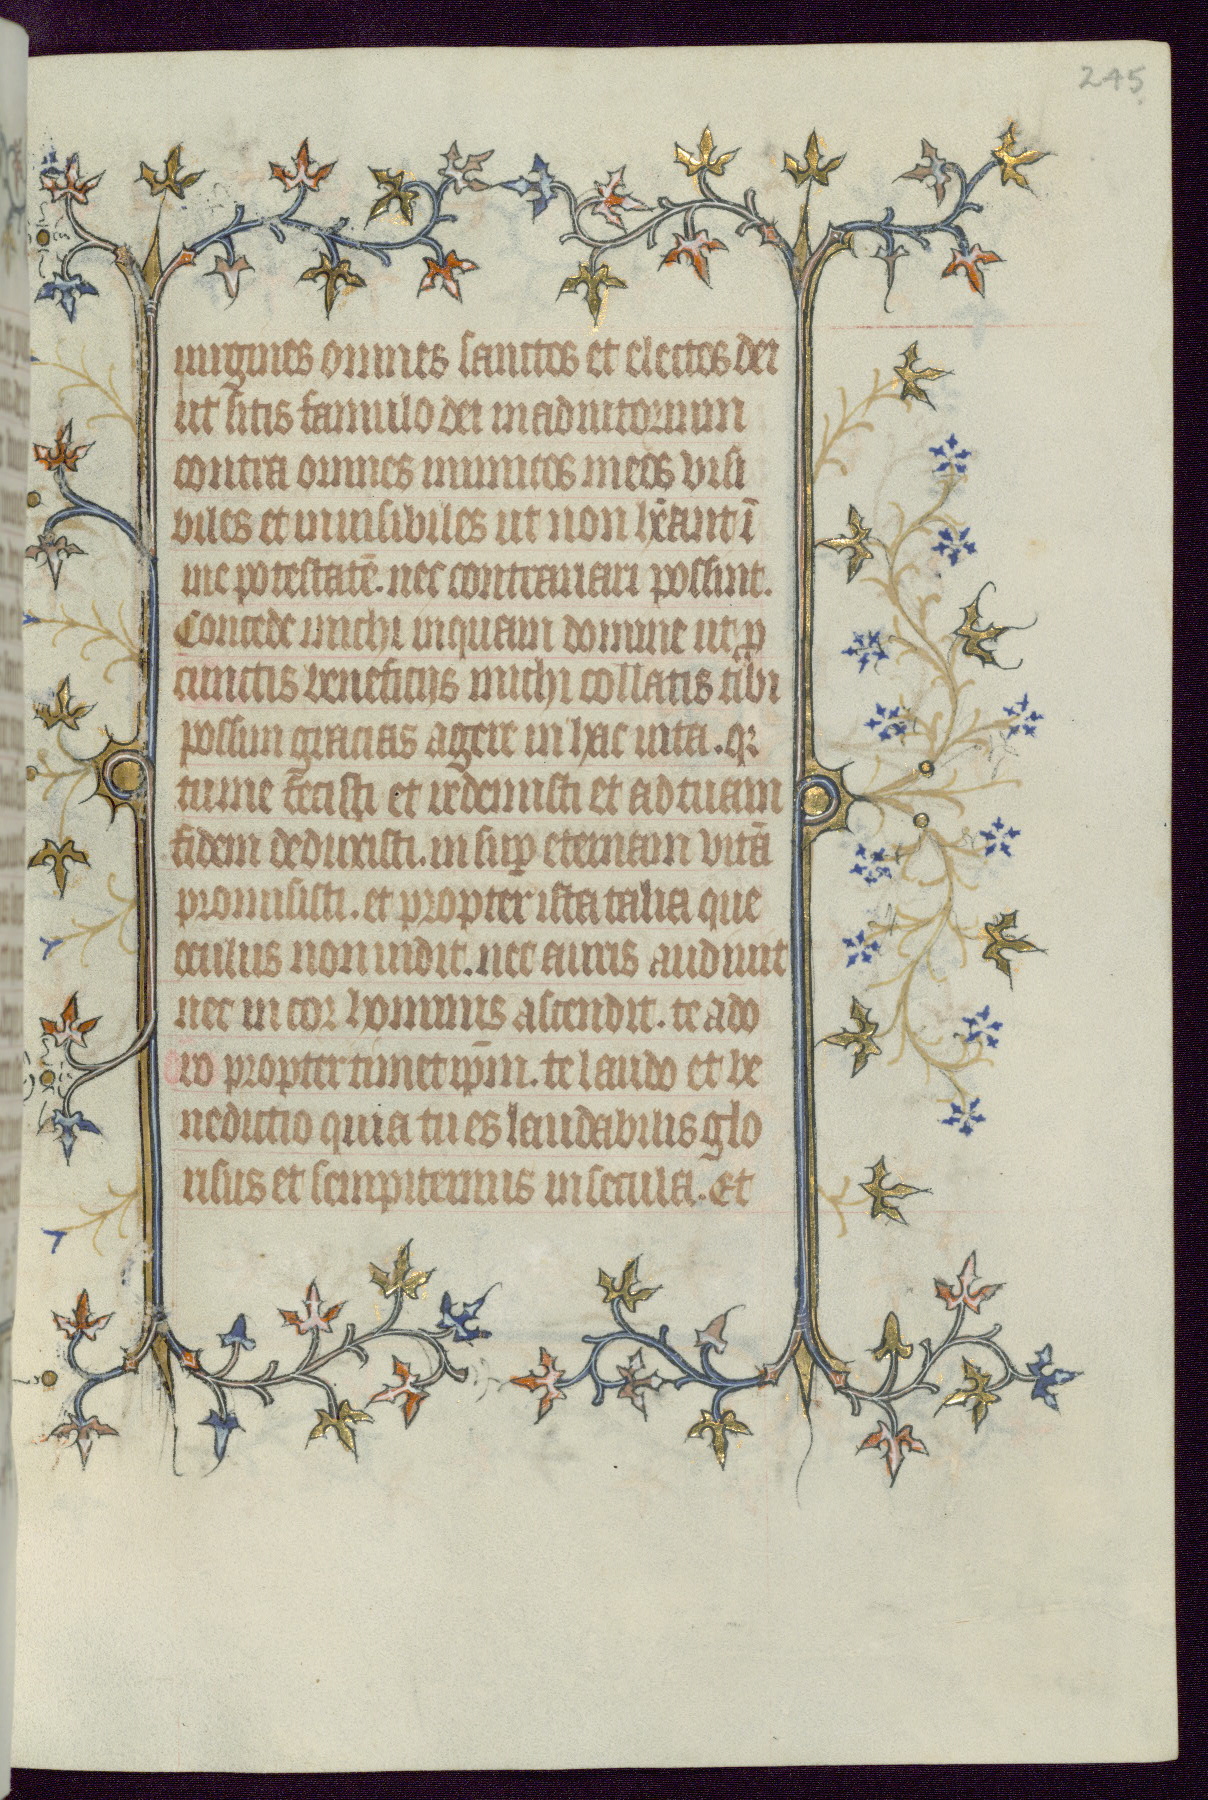 245
uirgines omnes sanctos et electos dei
ut sitis famulo dei in adiutorium
contra omnes inimicos meos visi
biles et inuisibiles ut non habeant ī
me potestatē. nec contrariari possint.
Concede michi inquam domine ut ꝓ
cunctis beneficijs michi collatis tibi
possim gracias agere in hac uita. qꝛ
tu me fecisti et redemisti et ad tuam
fidem deduxisti. in suꝑ eternam vitā
promisisti. et propter ista talia que
oculus non uidit. nec auris audiuit
nec in cor hominis ascendit. te ado
ro propter timet ip̄m. te laudo et be
nedictio quia tu es laudabilis glo
risus et sempiternus in secula. Et